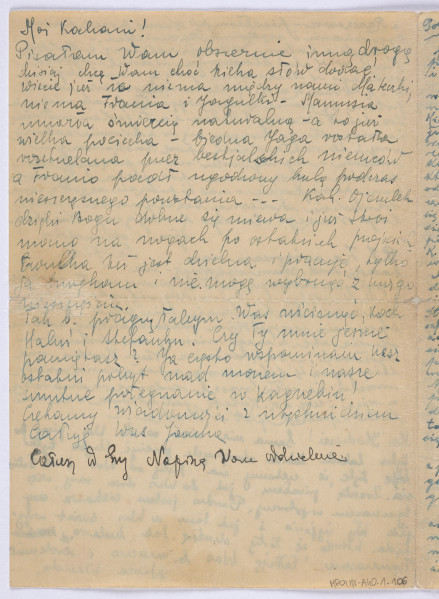 Moi Kochani!
Pisałam Wam obszernie inną drogą
dzisiaj chcę Wam choć kilka słów dodać!
Wiecie już że niema między nami Mateńki,
niema Frania i Jagulki - Mamusia
umarła śmiercią naturalną - a to już
wielka pociecha - biedna Jaga została
rozstrzelana przez bestjalskich niemców
a Franio padł ugodzony kulą podczas
nieszczęsnego powstania --- Koch. Ojczulek
dzięki Bogu dobrze się miewa i już stoi
mocno na nogach po ostatnich
też jest dzielna i pracuje, tylko
ja i nie mogę wybrnąć z mego
Tak b. pragnęłabym Was uściskać, Koch.
Halni i Stefanku. Czy Ty mnie jeszcze
pamiętasz? Ja często wspominam nasz
ostatni pobyt nad morzem i nasze
smutne pożegnanie w
Czekamy wiadomości z utęsknieniem
Całuję Was Joanna
Całuję Napiszę Wam
KPOL/III-A40-1-106